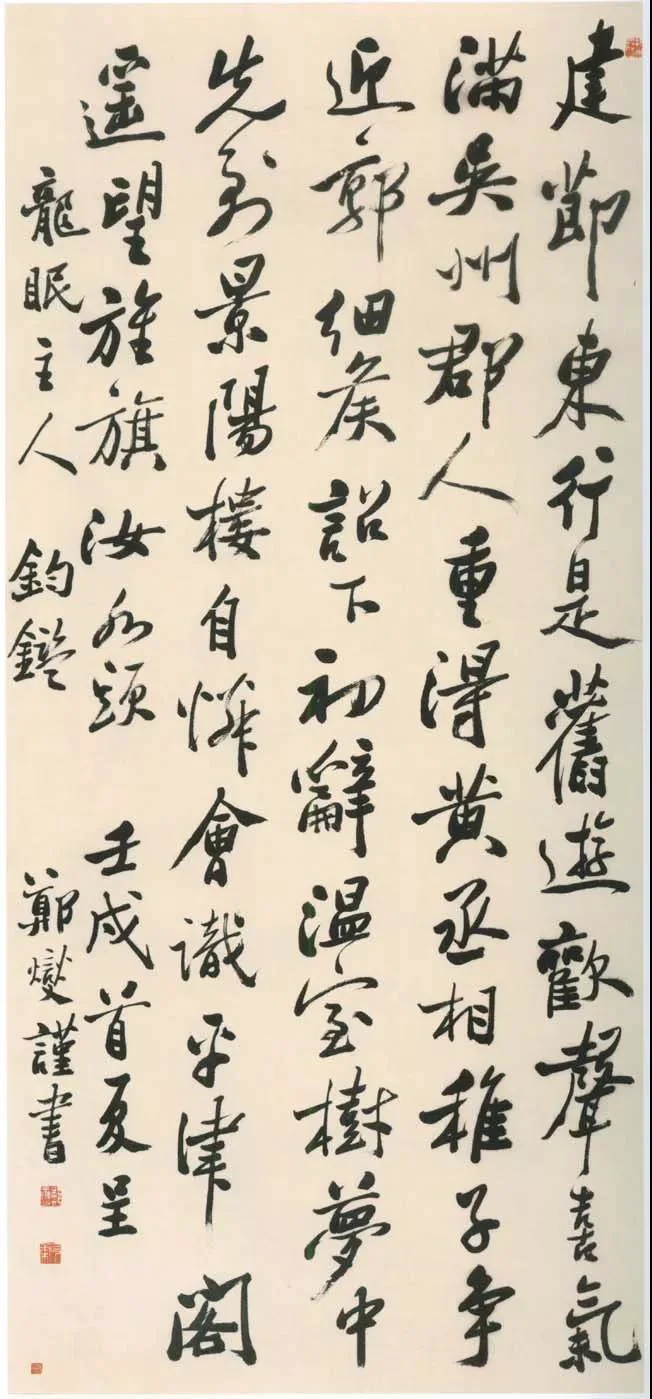 建節東行是舊遊歡聲喜氣
滿吳州郡人重得黃丞相稚子爭
近郭細侯詔下初辭溫室樹夢中
先到景陽樓自憐會識平津閣
遙望旌旗汝水頭 壬戌首夏呈
龍眠主人 鈞鑒 鄭燮謹書